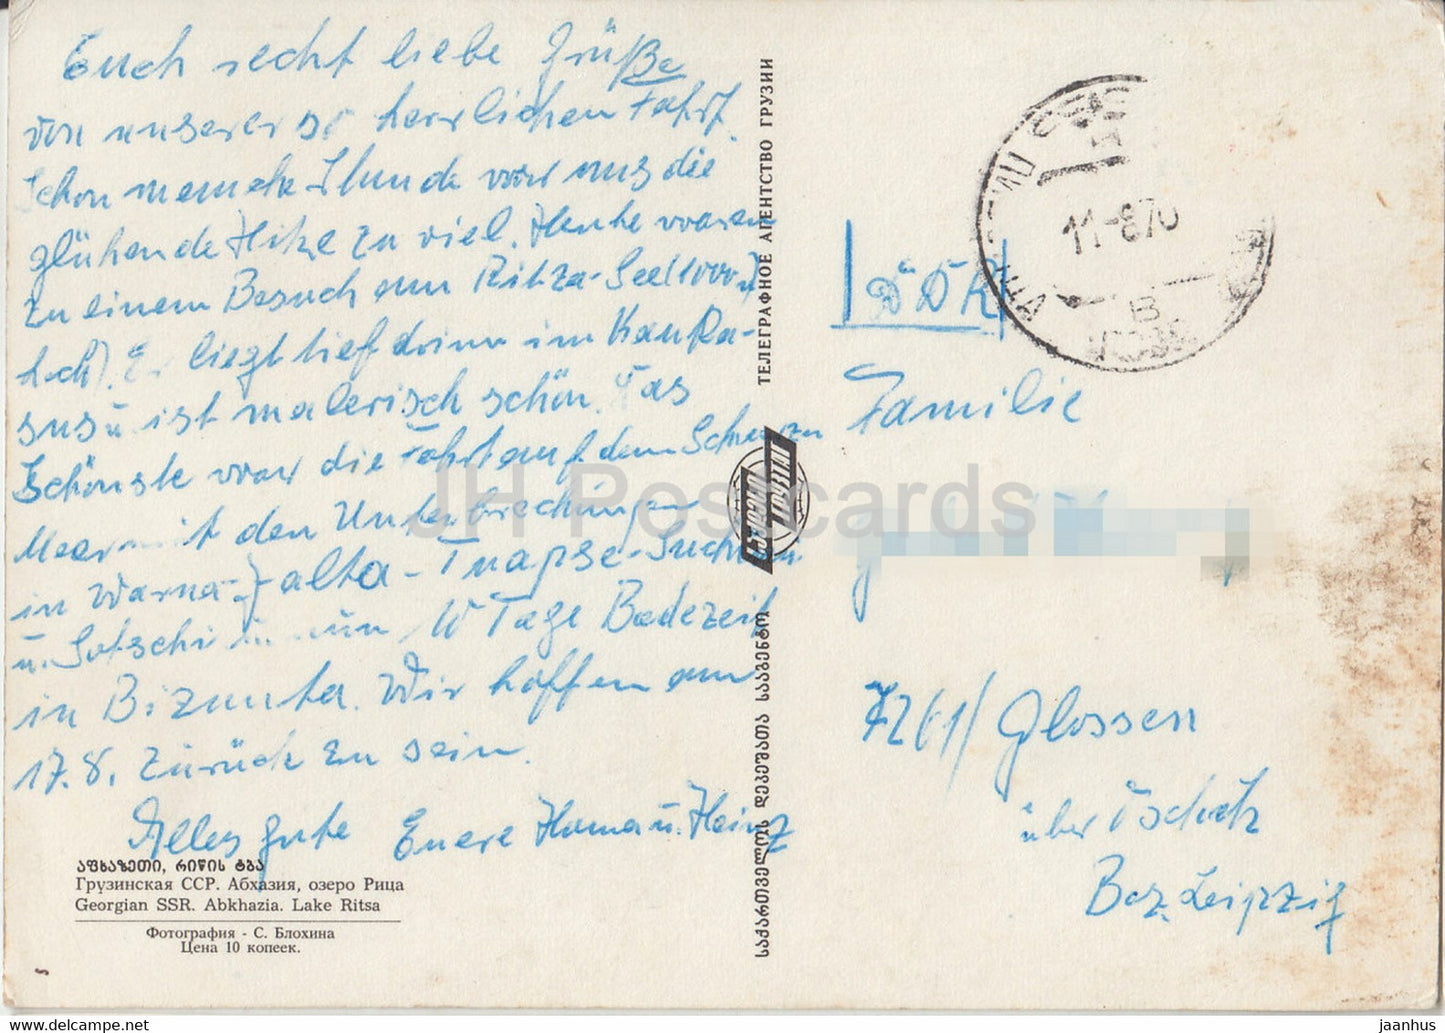 Euch recht liebe Grüße
von unserer so herrlichen Fahrt.
Schon manche Stunde war uns die
glühende Hitze zu viel. Heute waren
zu einem Besuch am Ritza-See (1000 m
hoch). Er liegt tief drinn im Kauka-
sus u. ist malerisch schön. Das
Schönste war die Fahrt auf dem Schwarzen
Meer mit den Unterbrechungen
in Warna-Jalta-Tuapse-Suchumi
u. Sotschi nun 10 Tage Badezeit
in Bizunta. Wir hoffen am
17.8. zurück zu sein.
Alles gute Euere Hanna u. Heinz
აფხაზეთი, რიწის ტბა
Грузинская ССР. Абхазия, озеро Рица
Georgian SSR. Abkhazia. Lake Ritsa
Фотография - С. Блохина
Цена 10 копеек.
ТЕЛЕГРАФНОЕ АГЕНТСТВО ГРУЗИИ
საქართველოს დეპეშათა სააგენტო
11-870
В
DDR
Familie
7261/ Glossen
über Oschatz
Bez. Leipzig
JH Postcards
www.delcampe.net
jaanhus